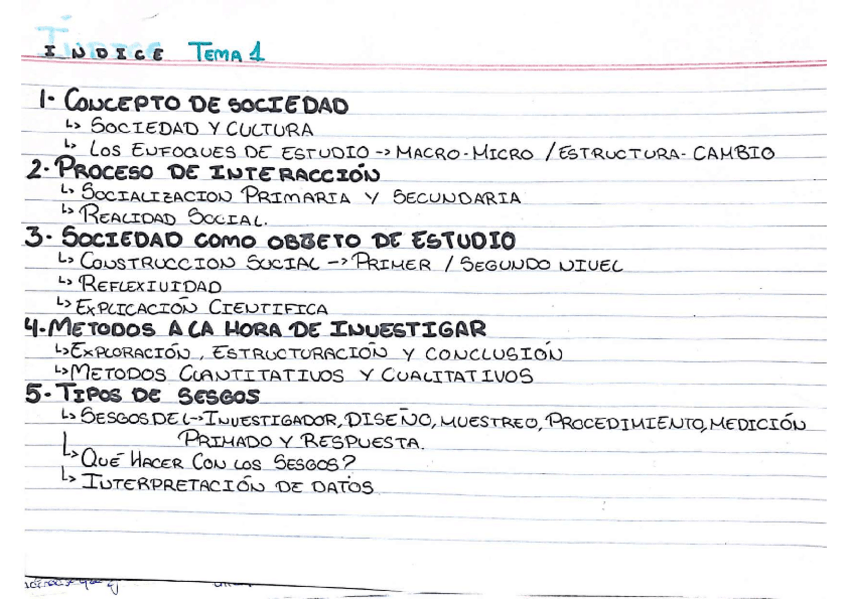 ÍNDICE TEMA 1
1- CONCEPTO DE SOCIEDAD
↳ SOCIEDAD Y CULTURA
↳ LOS ENFOQUES DE ESTUDIO -> MACRO-MICRO / ESTRUCTURA-CAMBIO
2- PROCESO DE INTERACCIÓN
↳ SOCIALIZACION PRIMARIA Y SECUNDARIA
↳ REALIDAD SOCIAL.
3- SOCIEDAD COMO OBJETO DE ESTUDIO
↳ CONSTRUCCION SOCIAL -> PRIMER / SEGUNDO NIVEL
↳ REFLEXIVIDAD
↳ EXPLICACIÓN CIENTIFICA
4- METODOS A LA HORA DE INVESTIGAR
↳ EXPLORACIÓN, ESTRUCTURACIÓN Y CONCLUSIÓN
↳ METODOS CUANTITATIVOS Y CUALITATIVOS
5- TIPOS DE SESGOS
↳ SESGOS DEL -> INVESTIGADOR, DISEÑO, MUESTREO, PROCEDIMIENTO, MEDICIÓN
PRIMADO Y RESPUESTA.
↳ QUÉ HACER CON LOS SESGOS?
↳ INTERPRETACIÓN DE DATOS